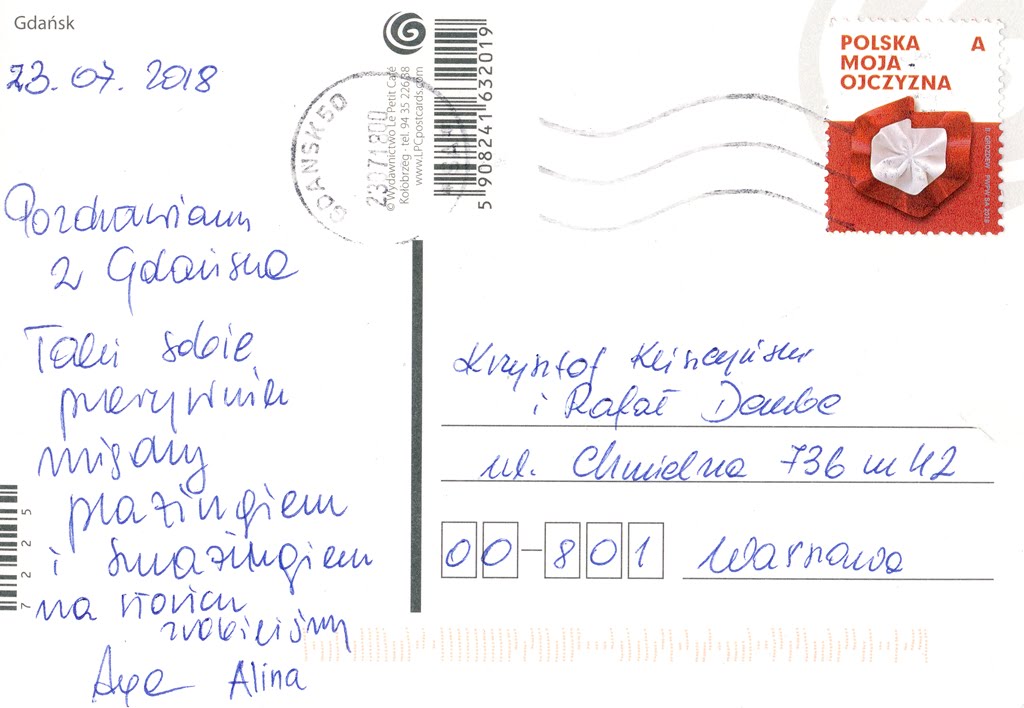 Gdańsk
23.07.2018
Pozdrawiamy
z Gdańska
Taki sobie
przerywnik
między
plażingiem
i smażingiem
na słońcu
zrobiliśmy
Aga Alina
GDAŃSK 50
© Wydawnictwo Le Petit Café
Kołobrzeg - tel. 94 35 226 38
www.LPCpostcards.com
5 908241 632019
POLSKA A
MOJA
OJCZYZNA
PWPW SA 2018
Krzysztof
i Rafał
ul. Chmielna 73b m 42
00-801 Warszawa
7 2 2 5